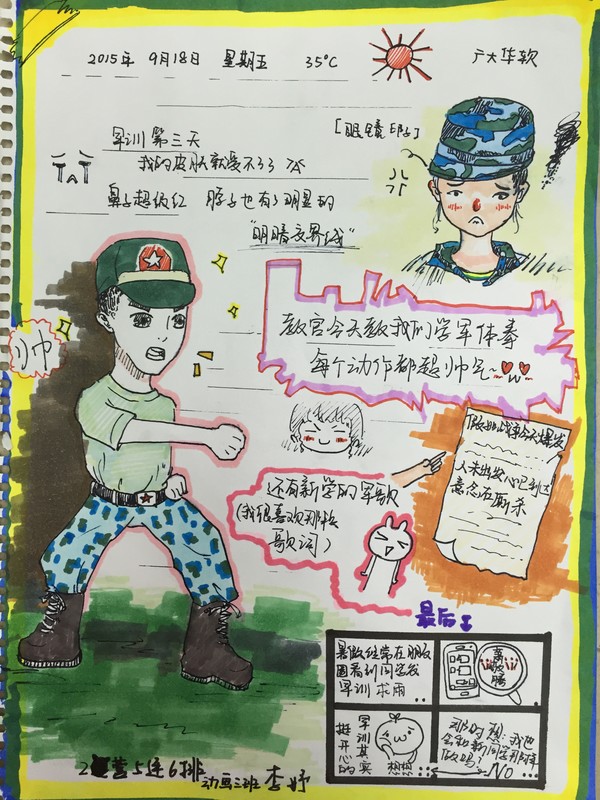 2015年 9月18日 星期五 35℃ 广大华软
[眼镜印]
军训第三天
我的皮肤就受不了了
鼻子超级红 脖子也有了明显的
"明暗交界线"
帅
教官今天教我们学军体拳
每个动作都超帅气~
还有新学的军歌
(我很喜欢那些
歌词)
假如战争今天爆发
人未出发心已到达
意念在厮杀
最后
暑假经常在朋友
圈看到同学发
军训求雨
军训其实
挺开心的
想想
那时想:我也
会和新同学那样
做吗?
NO
2营5连6排
动画三班 李妤